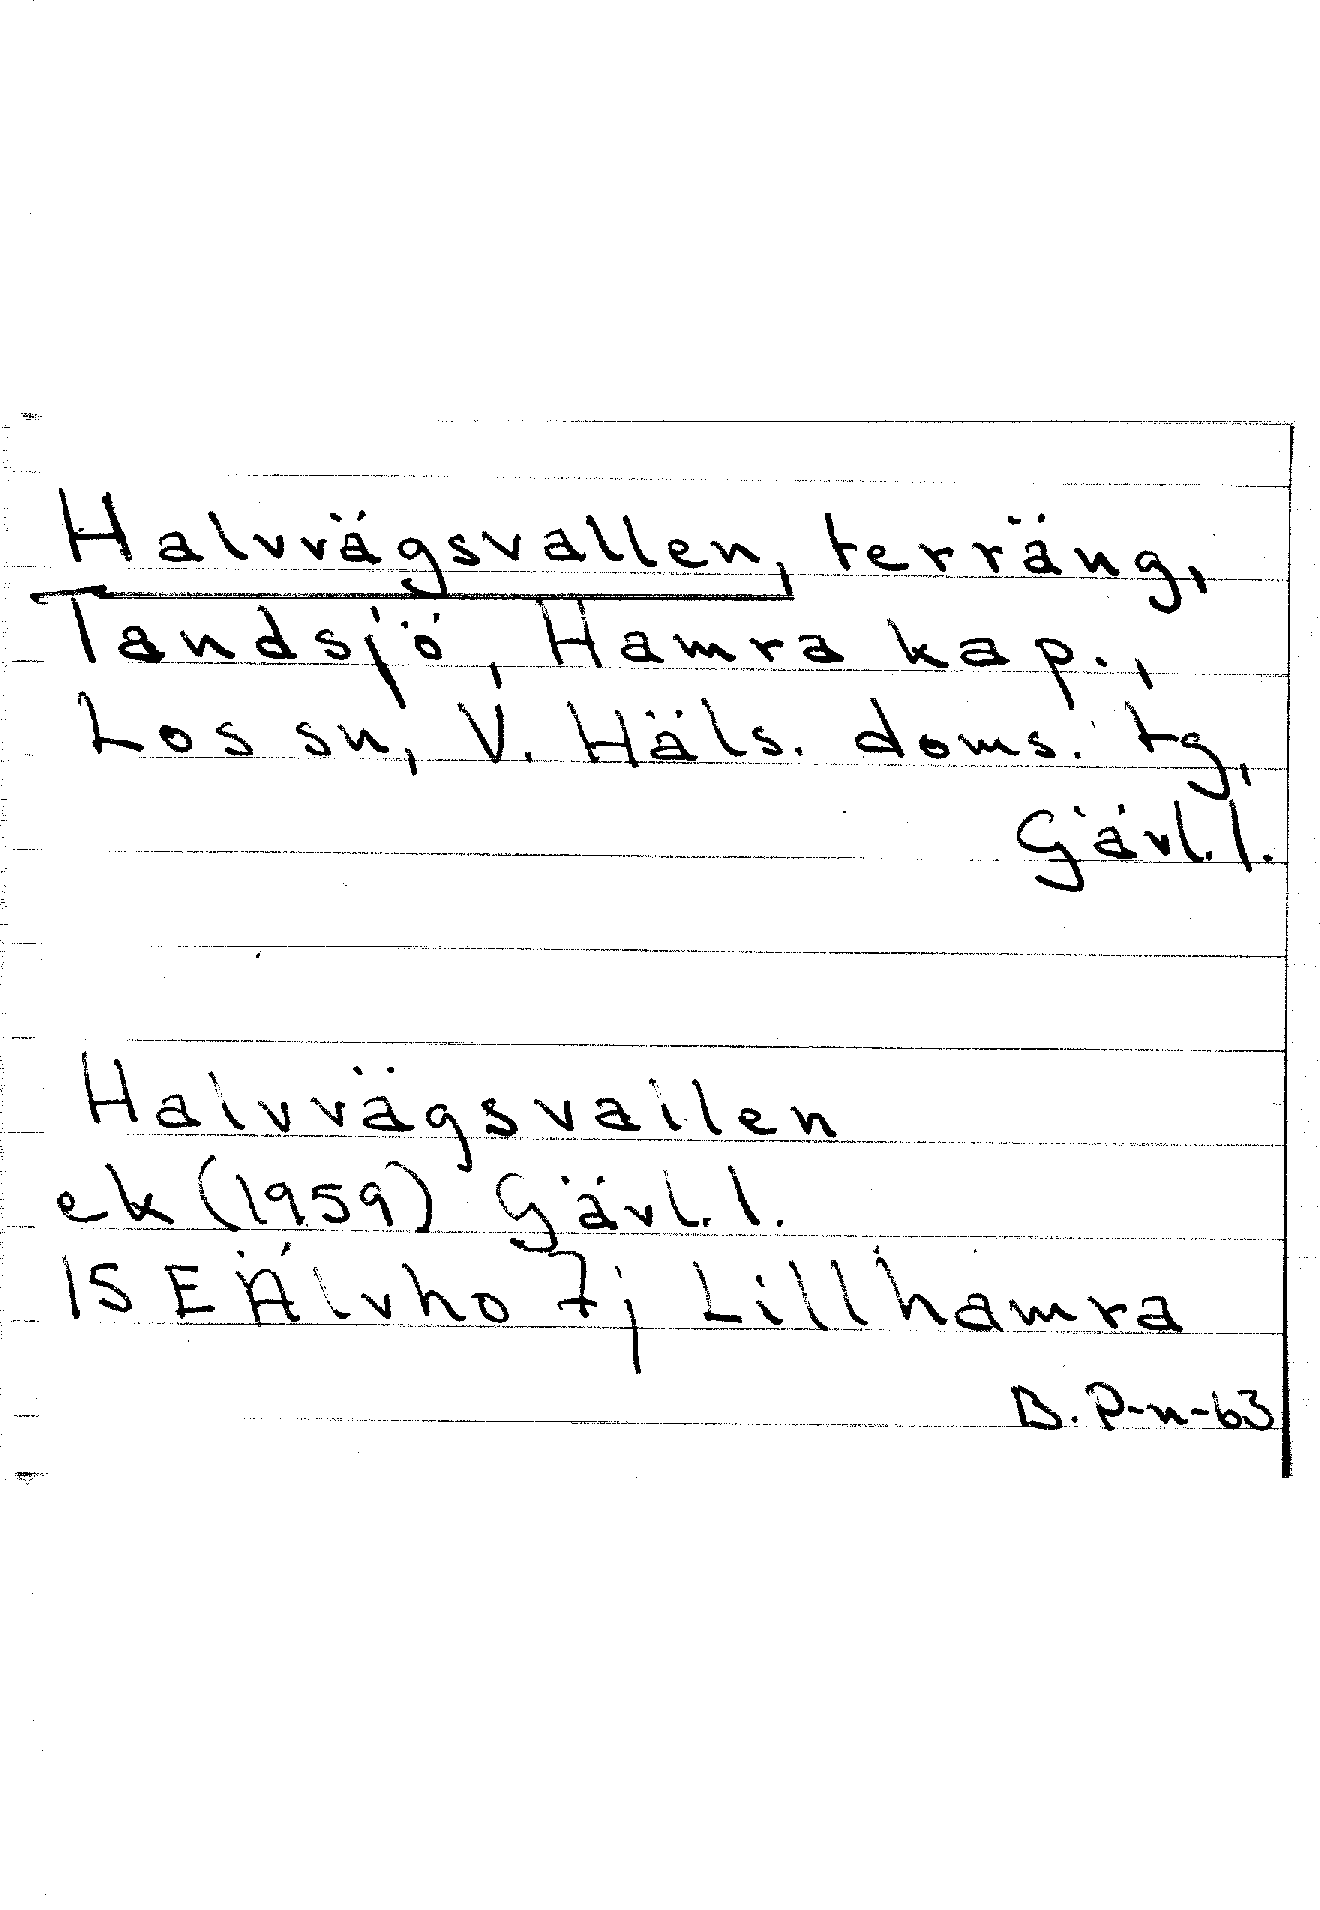 Halvvägsvallen, terräng,
Tandsjö, Hamra kap.,
Los sn, V. Häls. doms. tg,
Gävl. l.
Halvvägsvallen
ek (1959) Gävl. l.
15 E Älvho 7j Lillhamra
B. P-n-63